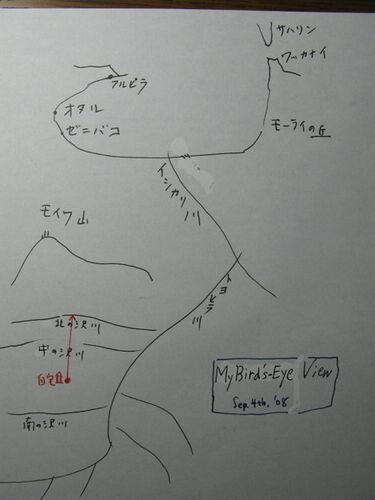 サハリン
ワッカナイ
フルビラ
オタル
ゼニバコ
モーライの丘
イシカリ川
モイワ山
トヨヒラ川
北の沢川
中の沢川
自宅
南の沢川
My Bird's-Eye View
Sep. 4th, '08